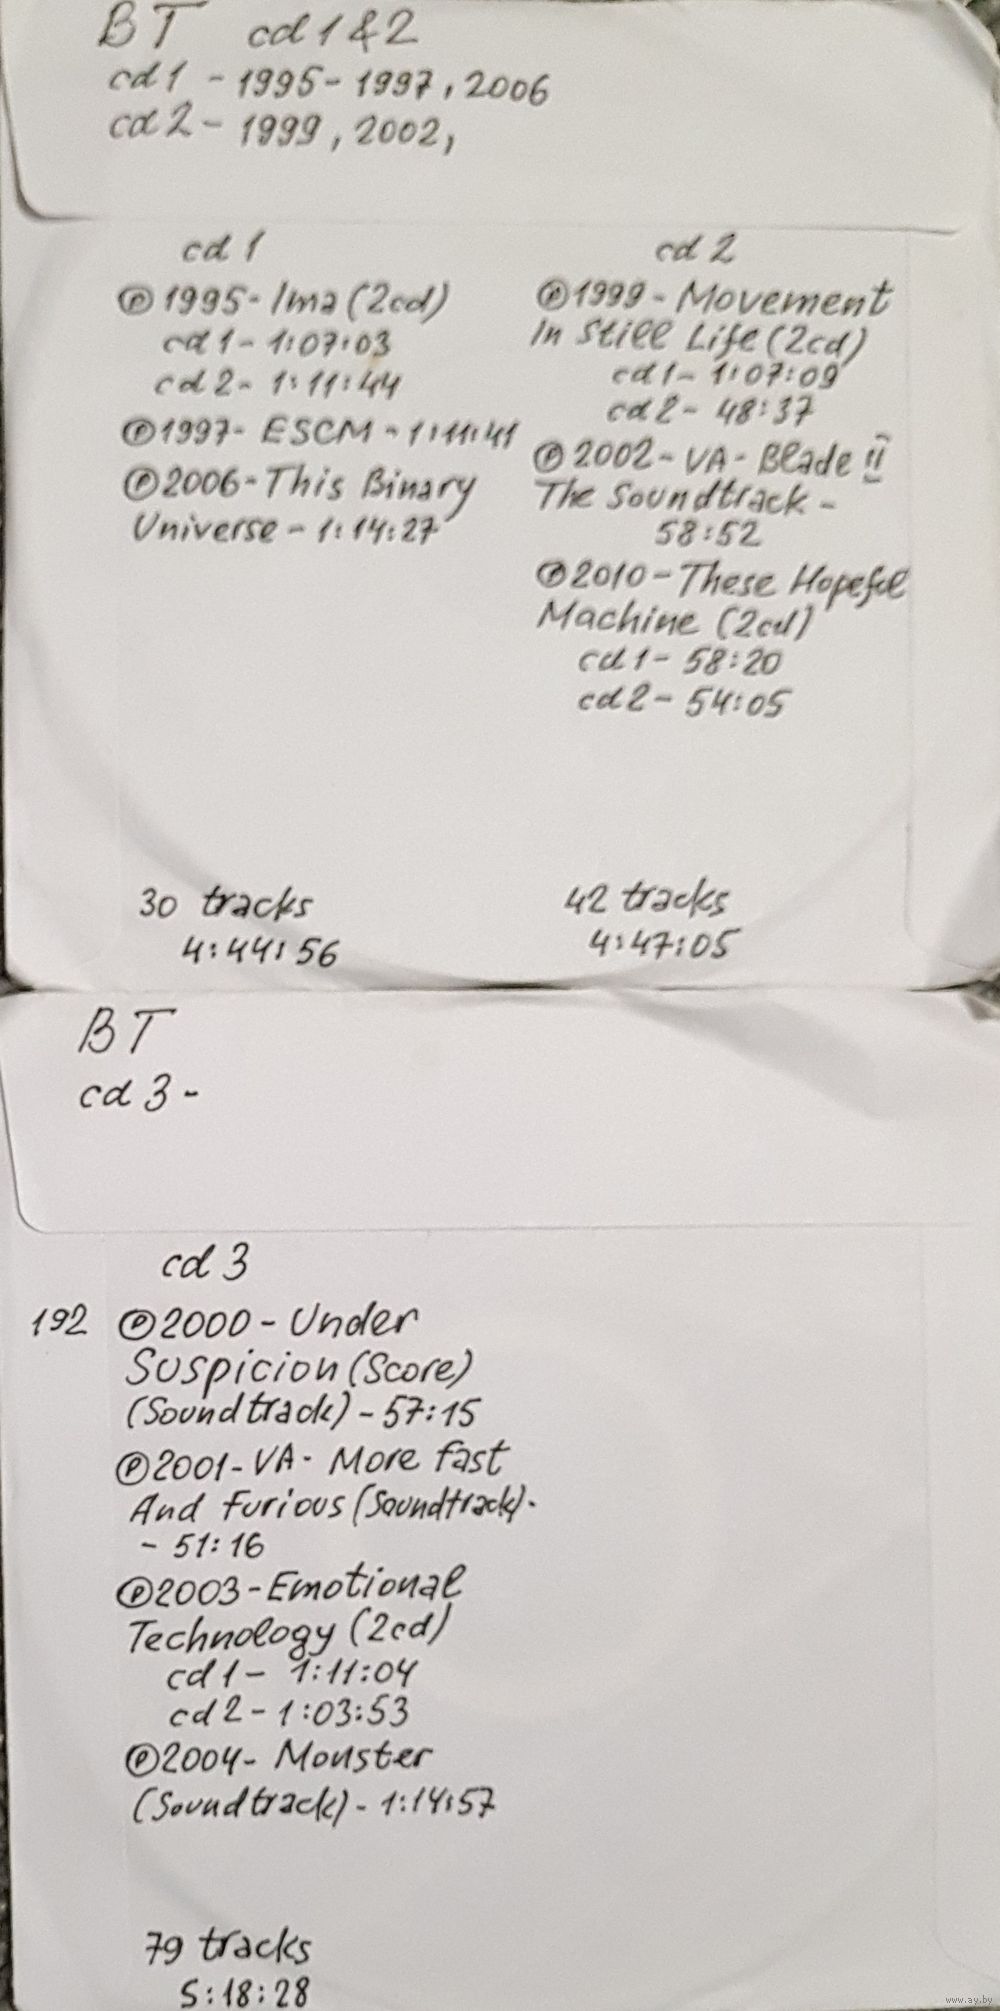 BT cd 1 & 2
cd 1 - 1995 - 1997, 2006
cd 2 - 1999, 2002,
cd 1
Ⓟ 1995 - Ima (2cd)
cd 1 - 1:07:03
cd 2 - 1:11:44
Ⓟ 1997 - ESCM - 1:11:41
Ⓟ 2006 - This Binary
Universe - 1:14:27
30 tracks
4:44:56
cd 2
Ⓟ 1999 - Movement
In Still Life (2cd)
cd 1 - 1:07:09
cd 2 - 48:37
Ⓟ 2002 - VA - Blade II
The Soundtrack -
58:52
Ⓟ 2010 - These Hopeful
Machine (2cd)
cd 1 - 58:20
cd 2 - 54:05
42 tracks
4:47:05
BT
cd 3 -
cd 3
192 Ⓟ 2000 - Under
Suspicion (Score)
(Soundtrack) - 57:15
Ⓟ 2001 - VA - More Fast
And Furious (Soundtrack) -
- 51:16
Ⓟ 2003 - Emotional
Technology (2cd)
cd 1 - 1:11:04
cd 2 - 1:03:53
Ⓟ 2004 - Monster
(Soundtrack) - 1:14:57
79 tracks
5:18:28
www.ay.by